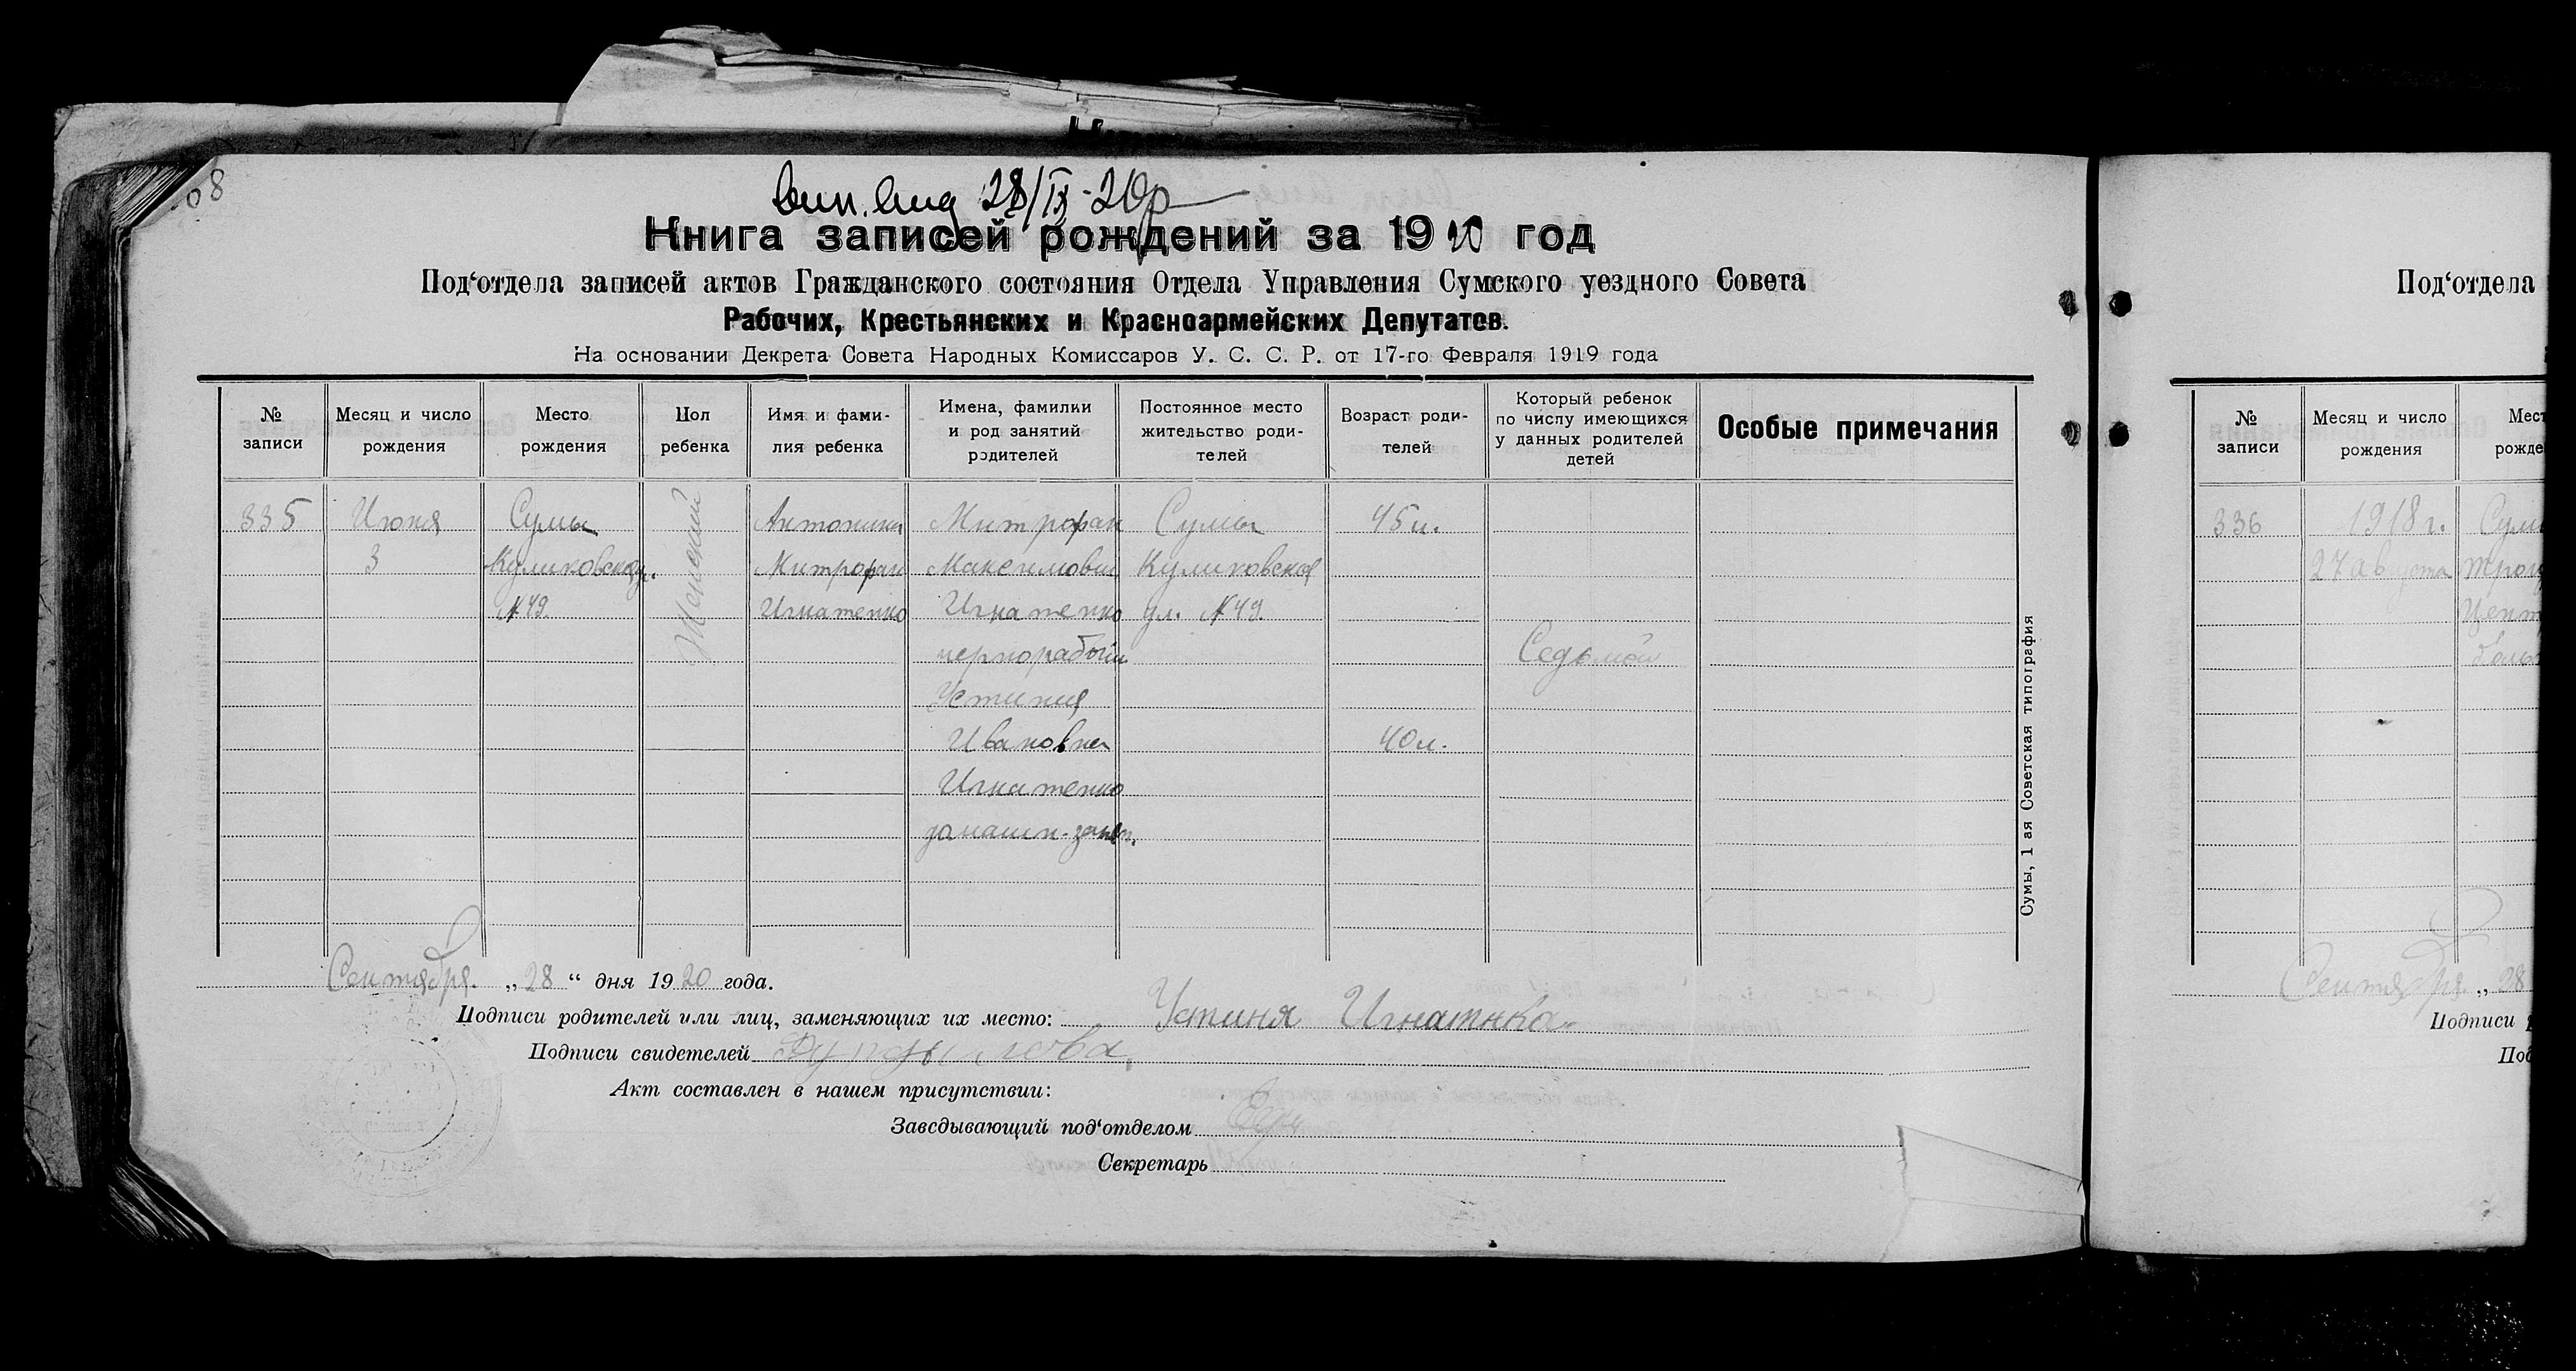 08
вып. вид 28/IX-20р
Книга записей рождений за 1920 год
Под‘отдела записей актов Гражданского состояния Отдела Управления Сумского уездного Совета
Рабочих, Крестьянских и Красноармейских Депутатов.
На основании Декрета Совета Народных Комиссаров У. С. С. Р. от 17-го Февраля 1919 года
№ записи
Месяц и число рождения
Место рождения
Пол ребенка
Имя и фами-
лия ребенка
Имена, фамилии
и род занятий
родителей
Постоянное место
жительство роди-
телей
Возраст роди-
телей
Который ребенок
по числу имеющихся
у данных родителей
детей
Особые примечания
335
Июня
3
Сумы
Куликовская.
№49.
Женский
Антонина
Митрофан
Игнатенко
Митрофан
Максимович
Игнатенко
чернорабочий
Устиния
Ивановна
Игнатенко
домашн-занят.
Сумы
Куликовская
ул. №49.
45 л.
40 л.
Седьмой
Сумы, 1 ая Советская типография
Сентября. „28“ дня 1920 года.
Подписи родителей или лиц, заменяющих их место: Устиня Игнатнка
Подписи свидетелей
Акт составлен в нашем присутствии:
Заведывающий под‘отделом
Секретарь
Под‘отдела
№ записи
Месяц и число рождения
Мест
рожде
336
1918 г.
27 августа
Сум
Трои
Цент
боль
Сентября „28
Подписи
Под